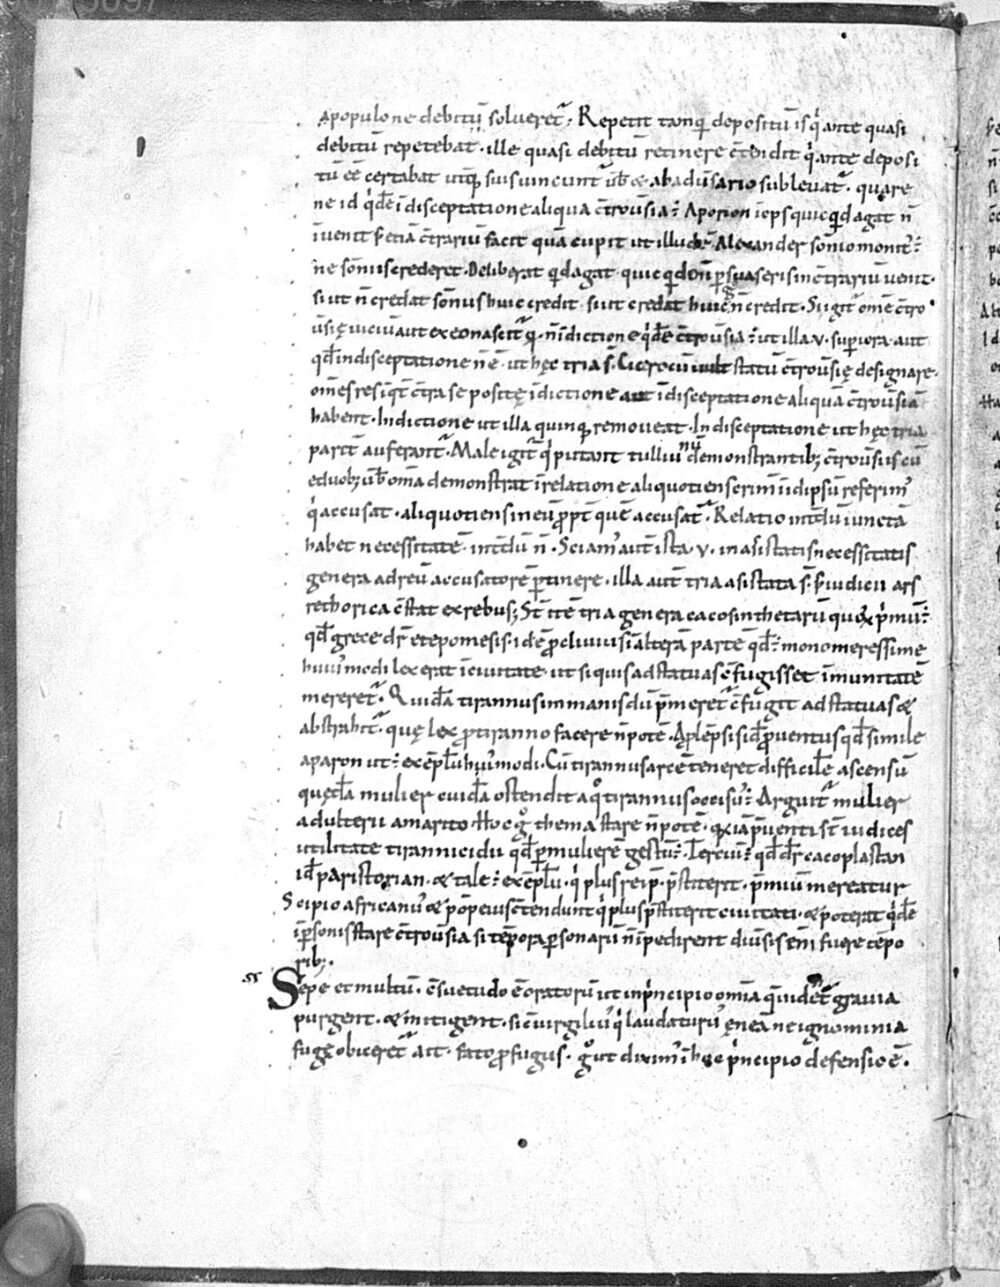 apopulone debitū solueret᷑. Repetit tamq̄ depositū is q̇ ante quasi
debitū repetebat. ille quasi debitū retinere c̄tendit q̇ ante deposi
tū eē certabat utiq; suis uincunt᷑ ūb & ab aduersario subleuat᷑. quare
ne id q̇dē i disceptatione aliqua c̄trouersia ÷ Aporon
īuenit & etiā c̄trariū facit quā cupit ut illud ÷ Alexander somno monit᷑ ÷
ne somnis crederet. Deliberat qd agat. quicqd enī psuaseris in c̄trariū uenit.
si ut n̄ credat somnis huic credit. si ut credat huic n̄ credit. Sugit᷑ om̄e c̄tro
uersię uiciū aut ex eo nascit᷑ q. n̄ i dictione q̇dē c̄trouersia ÷ ut illa v. superiora aut
qđ in disceptatione n̄ ē. ut hęc tria s̄. Cicero cū uult statū c̄trouersię designare.
om̄es res iqt c̄tra se positę i dictione aut i disceptatione aliquā c̄trouersiā
habent. In dictione ut illa quinq; remoueat. In disceptatione ut hęc tria
parit᷑ auferant᷑. Male igit᷑ q̇ putant tulliū demonstrantib; c̄trouersus cū
e duob; ūb om̄a demonstrat i relatione aliquotiens crim̄ i id ipsū referim᷒
q̇ accusat. aliquotiens in eū ꝓpt̄ quē accusat᷑. Relatio int̄dū iunctā
habet necessitatē. int̄dū n̄. Sciam᷒ aut̄ ista v. in asistatis necessitatis
genera ad reū accusatorē p̄tinere. illa aut̄ tria asistata s̄. & iudicii ars
rethorica c̄stat ex rebus; St̄ itē tria genera cacosinthetarū quoꝝ ṗmū ÷
qđ grece dr̄ etepomesis. idē ꝓcliuius i alterā partē qđ ÷ monomeres sime
hui᷒modi lex erat i ciuitate. ut siquis ad statuas c̄fugisset īmunitatē
mereret᷑. Quidā tirannus immanis dū p̄meret᷑ c̄fugit ad statuas &
abstrahit᷑. quę lex ꝓ tiranno facere n̄ potē.
aparon ut ÷ exēplū hui᷒modi. Cū tirannus arcē teneret difficilē ascensū
quędā mulier cuidā ostendit a q̊ tirannus occisus ÷ Arguit᷑ mulier
adulterii a marito. Hoc g̊ thema stare n̄ potē. quia p̄uenti st̄ iudices
utilitate tirannicidii qđ p̄ mulierē gestū ÷ Terciū ÷ qđ dr̄ cacoplastan
id̄ paristorian. & tale ÷ exēplū. q̇ plus reip̄. p̄stiterit. p̄miū mereatur
Scipio africanus & pōpeius c̄tendunt q̇ plus p̄stiterit ciuitati. & poterat q̇dē
i p̄sonis stare c̄trouersia si tēpora p̄sonarū n̄ ipedirent diuersis enī fuere tēpo
rib;.
Sepe et multū. c̄suetudo ē oratorū ut in ṗncipio om̄ia q̄ uident᷑ grauia
purgent. & mitigent. sic uirgilius q̇ laudaturus ęneā ne ignominia
fugę obiceret᷑ ait. fato ꝓfugus. g̊ ut dixim᷒ i hoc ṗncipio defensio ē.